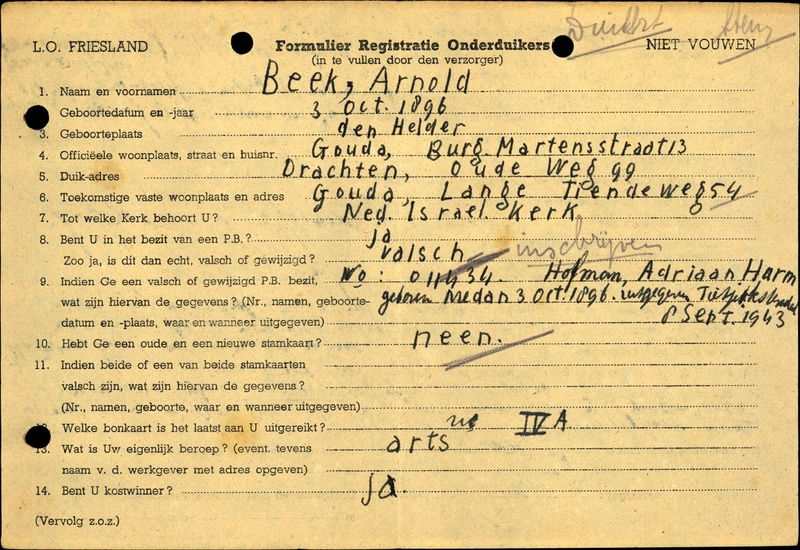 L.O. FRIESLAND
Formulier Registratie Onderduikers
NIET VOUWEN
(in te vullen door den verzorger)
1. Naam en voornamen Beek, Arnold
Geboortedatum en -jaar 3 Oct. 1896
3. Geboorteplaats den Helder
4. Officiëele woonplaats, straat en huisnr. Gouda, Burg. Martensstraat 13
5. Duik-adres Drachten, Oude Weg 99
6. Toekomstige vaste woonplaats en adres Gouda, Lange Tiendeweg 54
7. Tot welke Kerk behoort U? Ned. Israel. Kerk
8. Bent U in het bezit van een P.B.? ja
Zoo ja, is dit dan echt, valsch of gewijzigd? valsch inschrijven
9. Indien Ge een valsch of gewijzigd P.B. bezit, No: 011434. Hofman, Adriaan Harm
wat zijn hiervan de gegevens? (Nr., namen, geboorte- geboren Medan 3 Oct. 1896. uitgegeven
datum en -plaats, waar en wanneer uitgegeven) 8 Sept. 1943
10. Hebt Ge een oude en een nieuwe stamkaart? neen.
11. Indien beide of een van beide stamkaarten
valsch zijn, wat zijn hiervan de gegevens?
(Nr., namen, geboorte, waar en wanneer uitgegeven)
Welke bonkaart is het laatst aan U uitgereikt? IV A
13. Wat is Uw eigenlijk beroep? (event. tevens arts
naam v. d. werkgever met adres opgeven)
14. Bent U kostwinner? ja.
(Vervolg z.o.z.)